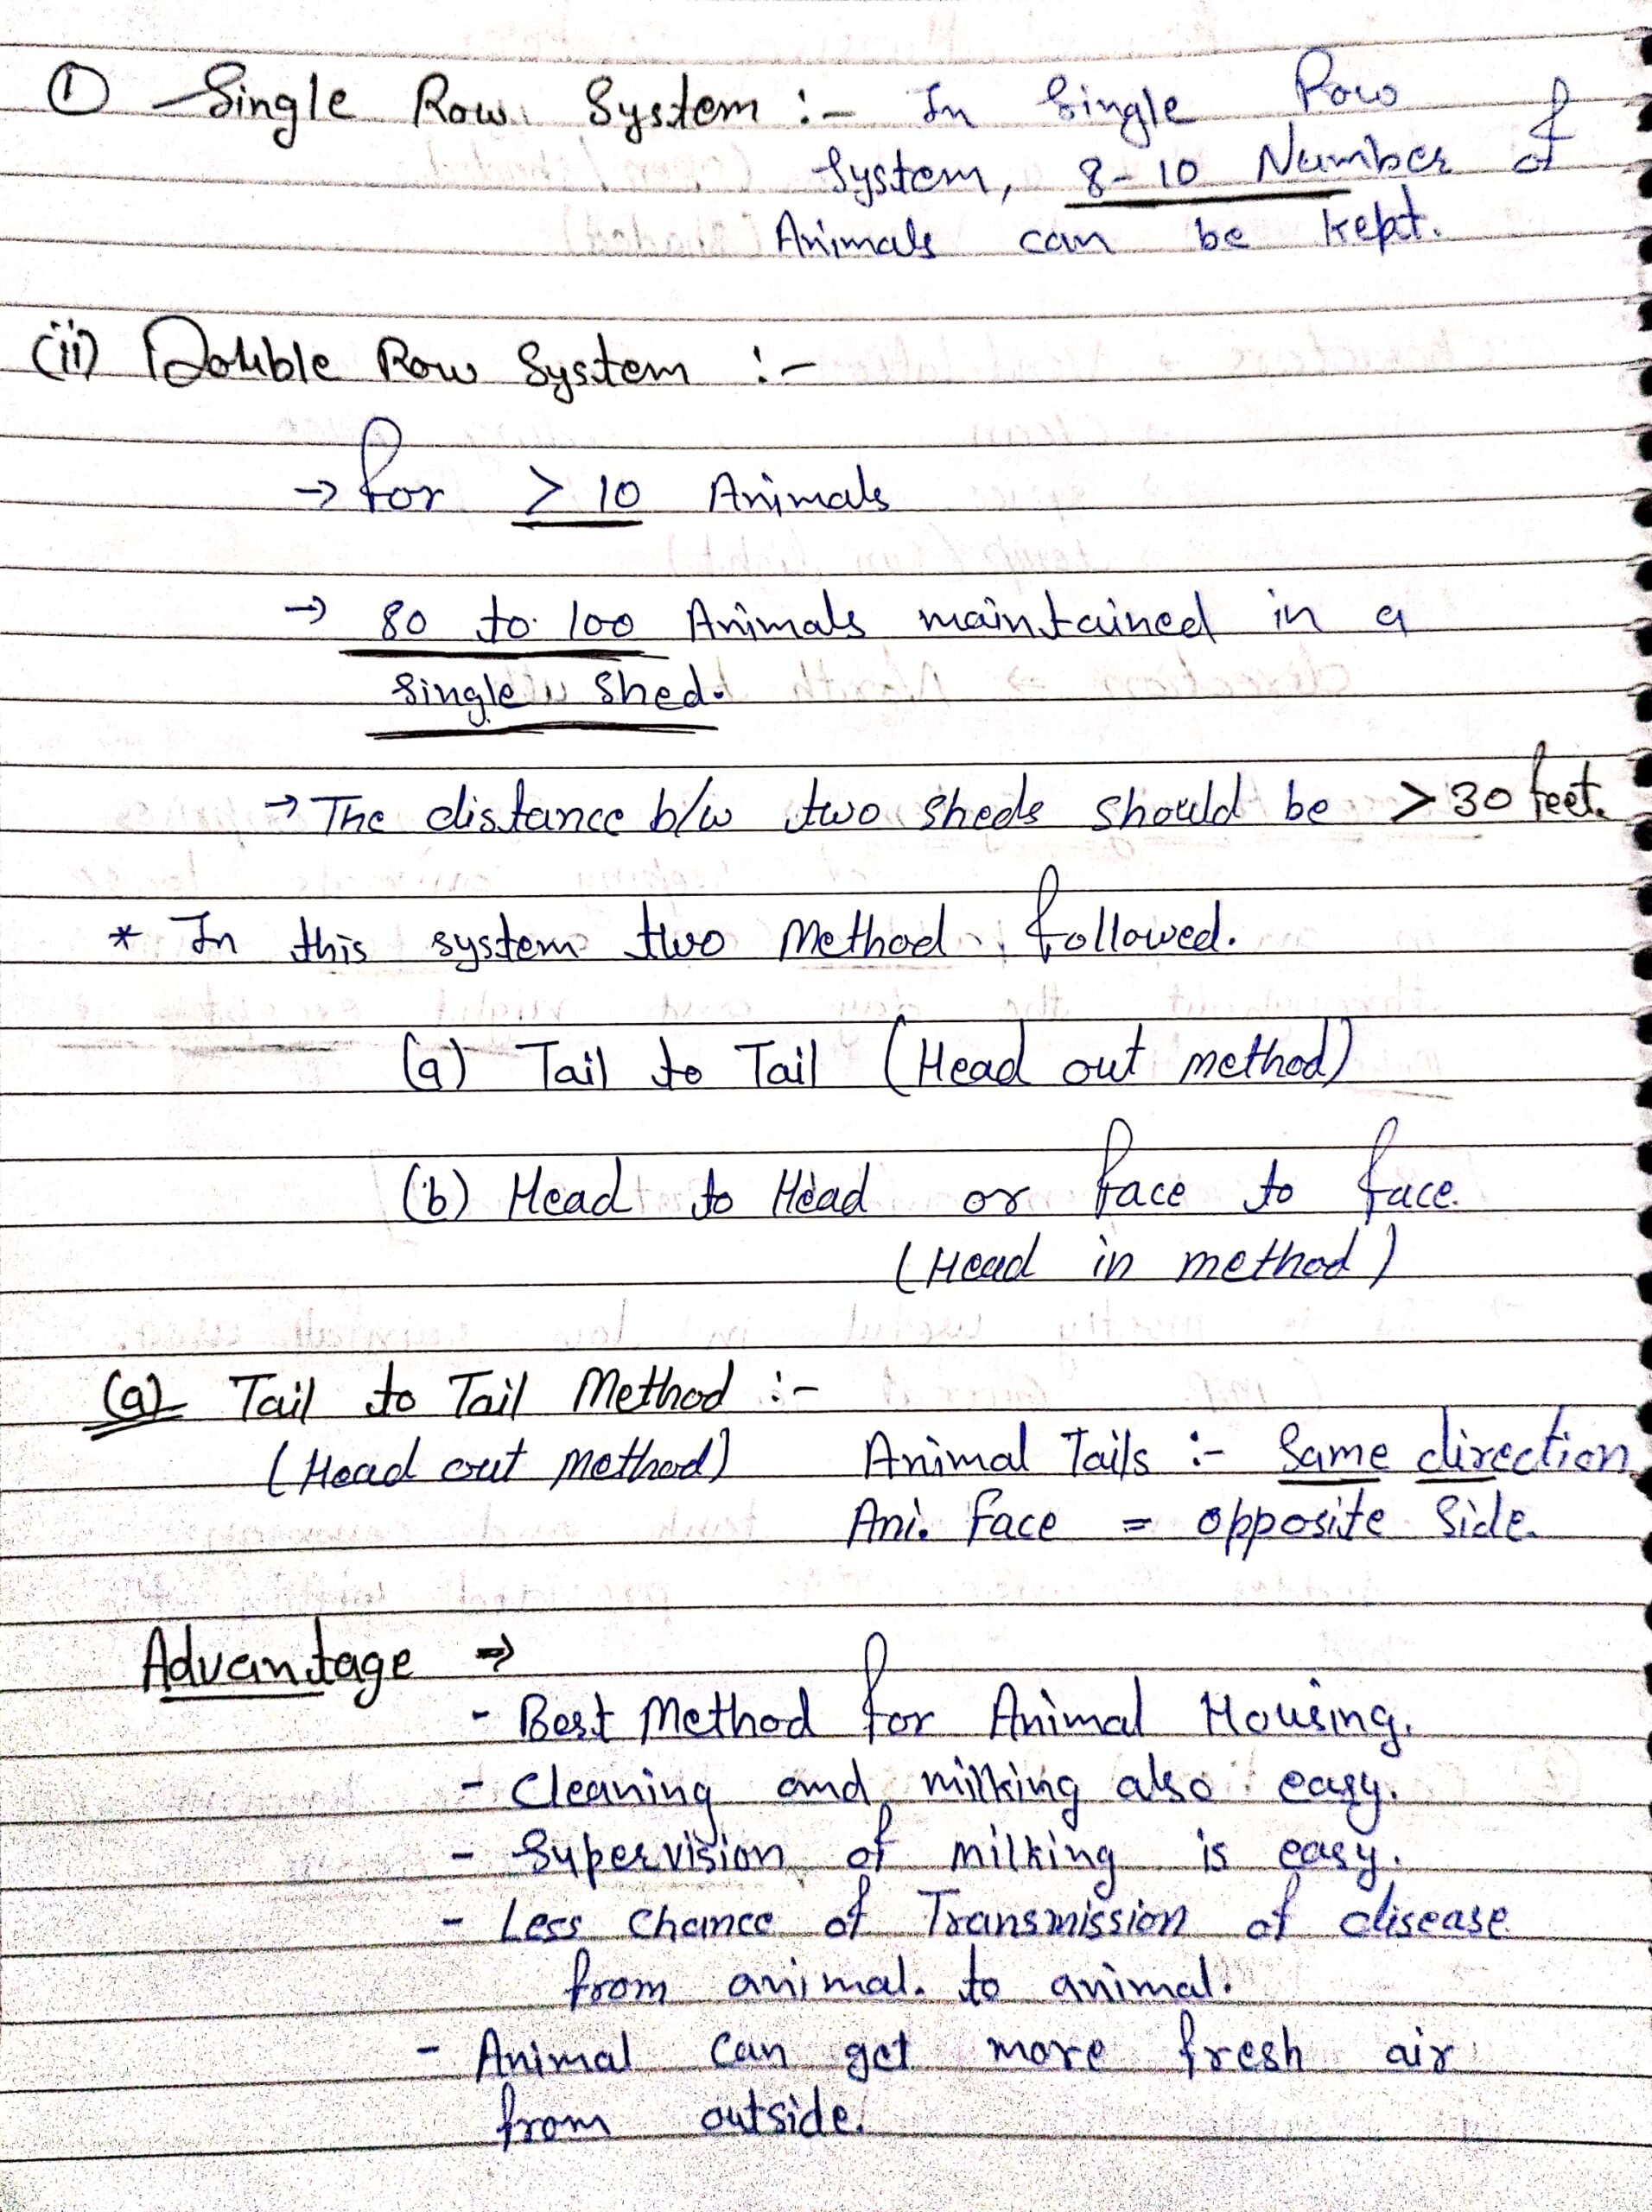 ① Single Row System :- In Single Row
System, 8-10 Number of
Animals can be kept.
(ii) Double Row System :-
→ for > 10 Animals
→ 80 to 100 Animals maintained in a
Single Shed.
→ The distance b/w two sheds should be > 30 feet.
* In this system two Method followed.
(a) Tail to Tail (Head out method)
(b) Head to Head or face to face.
(Head in method)
(a) Tail to Tail Method :-
(Head out Method) Animal Tails :- Same direction
Ani. Face = opposite Side.
Advantage ⇒
- Best Method for Animal Housing.
- Cleaning and milking also easy.
- Supervision of milking is easy.
- Less Chance of Transmission of disease
from animal. to animal.
- Animal Can get more fresh air
from outside.